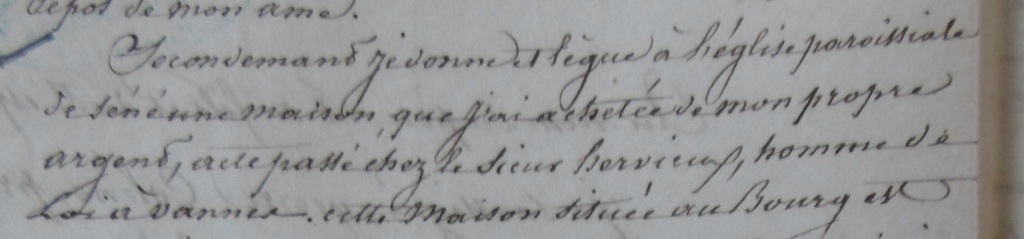 depos de mon ame.
Secondemand je donne et lègue à l'église paroissiale
de séné une maison, que j'ai achetée de mon propre
argend, acte passé chez le sieur hervieux, homme de
Loi à vannes. cette Maison située au Bourg est